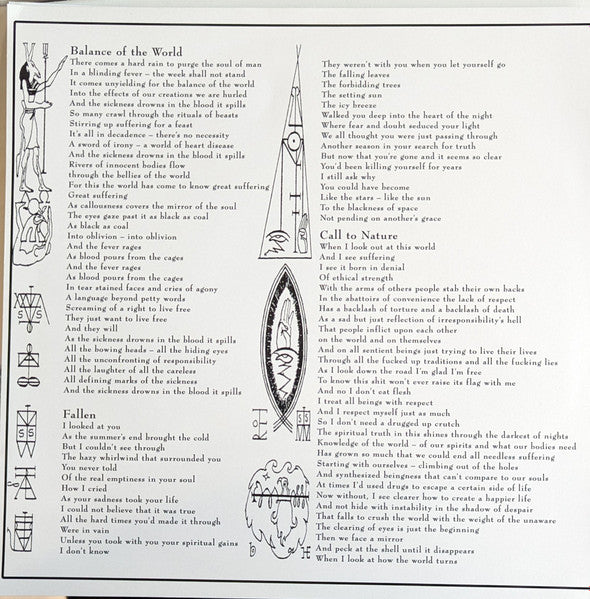 Balance of the World
There comes a hard rain to purge the soul of man
In a blinding fever – the week shall not stand
It comes unyielding for the balance of the world
Into the effects of our creations we are hurled
And the sickness drowns in the blood it spills
So many crawl through the rituals of beasts
Stirring up suffering for a feast
It's all in decadence – there's no necessity
A sword of irony – a world of heart disease
And the sickness drowns in the blood it spills
Rivers of innocent bodies flow
through the bellies of the world
For this the world has come to know great suffering
Great suffering
As callousness covers the mirror of the soul
The eyes gaze past it as black as coal
As black as coal
Into oblivion – into oblivion
And the fever rages
As blood pours from the cages
And the fever rages
As blood pours from the cages
In tear stained faces and cries of agony
A language beyond petty words
Screaming of a right to live free
They just want to live free
And they will
As the sickness drowns in the blood it spills
All the bowing heads – all the hiding eyes
All the unconfronting of responsibility
All the laughter of all the careless
All defining marks of the sickness
And the sickness drowns in the blood it spills
Fallen
I looked at you
As the summer's end brought the cold
But I couldn't see through
The hazy whirlwind that surrounded you
You never told
Of the real emptiness in your soul
How I cried
As your sadness took your life
I could not believe that it was true
All the hard times you'd made it through
Were in vain
Unless you took with you your spiritual gains
I don't know
They weren't with you when you let yourself go
The falling leaves
The forbidding trees
The setting sun
The icy breeze
Walked you deep into the heart of the night
Where fear and doubt seduced your light
We all thought you were just passing through
Another season in your search for truth
But now that you're gone and it seems so clear
You'd been killing yourself for years
I still ask why
You could have become
Like the stars – like the sun
To the blackness of space
Not pending on another's grace
Call to Nature
When I look out at this world
And I see suffering
I see it born in denial
Of ethical strength
With the arms of others people stab their own backs
In the abattoirs of convenience the lack of respect
Has a backlash of torture and a backlash of death
As a sad but just reflection of irresponsibility's hell
That people inflict upon each other
on the world and on themselves
And on all sentient beings just trying to live their lives
Through all the fucked up traditions and all the fucking lies
As I look down the road I'm glad I'm free
To know this shit won't ever raise its flag with me
And no I don't eat flesh
I treat all beings with respect
And I respect myself just as much
So I don't need a drugged up crutch
The spiritual truth in this shines through the darkest of nights
Knowledge of the world – of our spirits and what our bodies need
Has grown so much that we could end all needless suffering
Starting with ourselves – climbing out of the holes
And synthesized beingness that can't compare to our souls
At times I'd used drugs to escape a certain side of life
Now without, I see clearer how to create a happier life
And not hide with instability in the shadow of despair
That falls to crush the world with the weight of the unaware
The clearing of eyes is just the beginning
Then we face a mirror
And peck at the shell until it disappears
When I look at how the world turns